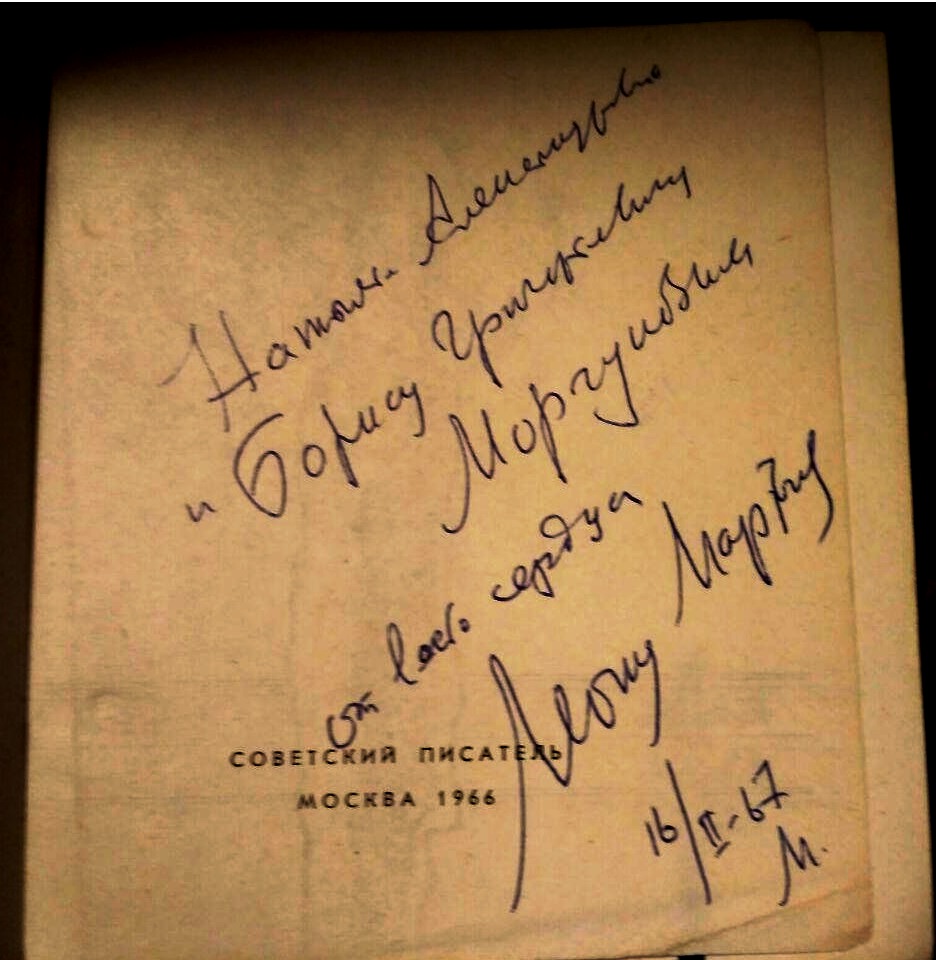 Наталье Александровне
и Борису Григорьевичу
Моргуновым
от всего сердца
Леонид Мартынов
СОВЕТСКИЙ ПИСАТЕЛЬ
МОСКВА 1966
16/II-67
М.